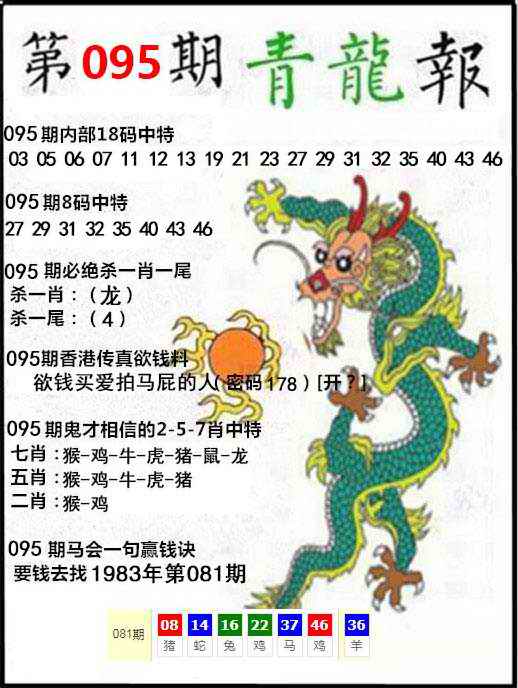 第095期青龍報
095期内部18码中特
03 05 06 07 11 12 13 19 21 23 27 29 31 32 35 40 43 46
095期8码中特
27 29 31 32 35 40 43 46
095 期必绝杀一肖一尾
杀一肖：（龙）
杀一尾：（4）
095期香港传真欲钱料
欲钱买爱拍马屁的人(密码178)[开？]
095期鬼才相信的2-5-7肖中特
七肖：猴-鸡-牛-虎-猪-鼠-龙
五肖：猴-鸡-牛-虎-猪
二肖：猴-鸡
095期马会一句赢钱诀
要钱去找1983年第081期
081期 08 14 16 22 37 46 36
猪 蛇 兔 鸡 马 鸡 羊